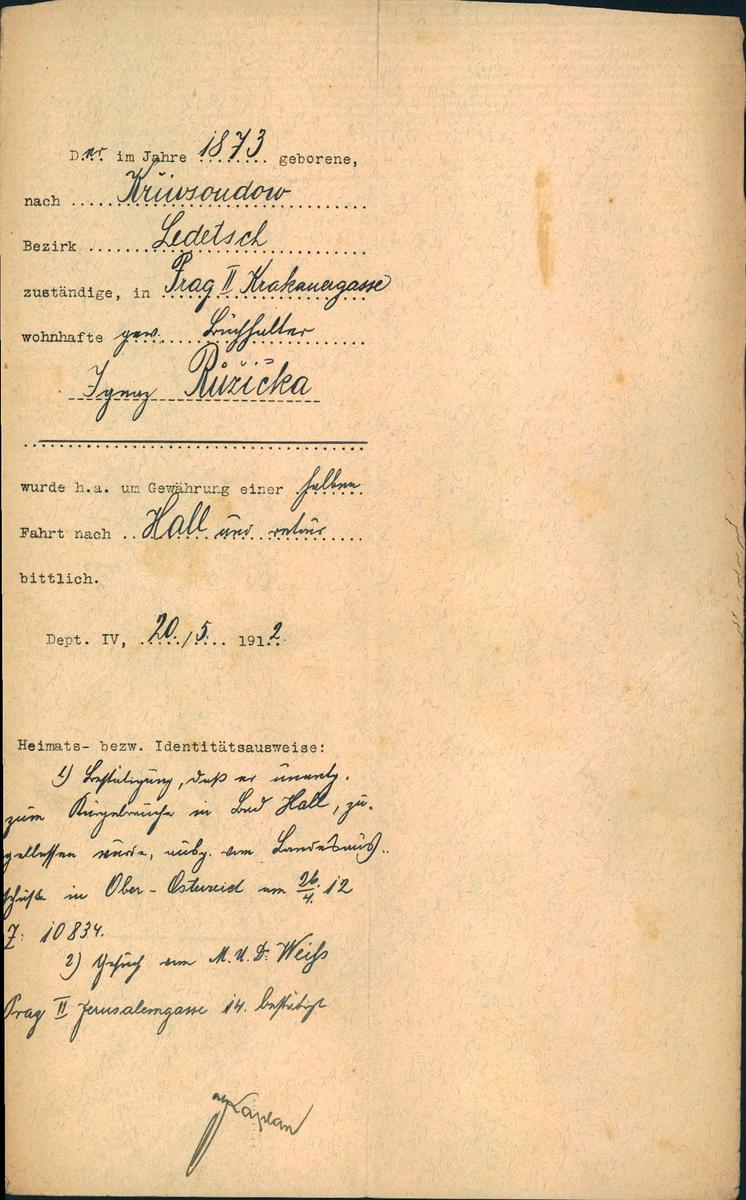 Der im Jahre 1873 geborene,
nach Křiwsoudow
Bezirk Ledetsch
zuständige, in Prag II Krakauergasse
wohnhafte gew. Buchhalter
Ignaz Růžička
wurde h.a. um Gewährung einer halben
Fahrt nach Hall und retour
bittlich.
Dept. IV, 20./5. 1912.
Heimats- bezw. Identitätsausweise:
1) Bestätigung, daß er unentg.
zum Kurgebrauche in Bad Hall, zu-
gelassen wurde, ausg. vom Landesaus-
schuße in Ober-Österreich am 26./4. 12
Z: 10834.
2) Gesuch vom M.U.Dr. Weiss
Prag II Jerusalemgasse 14. bestätigt
Kaplan